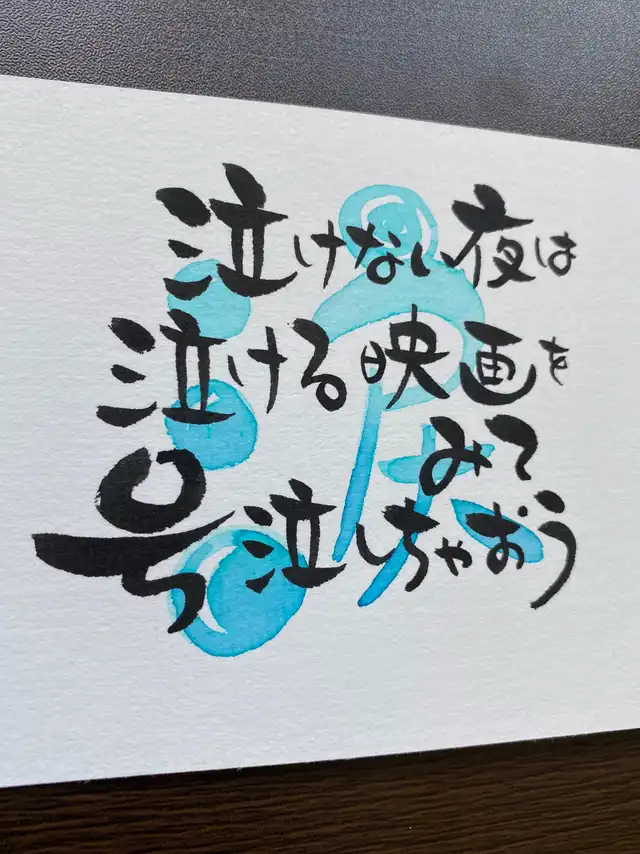 泣けない夜は
泣ける映画を
みて
号泣しちゃおう